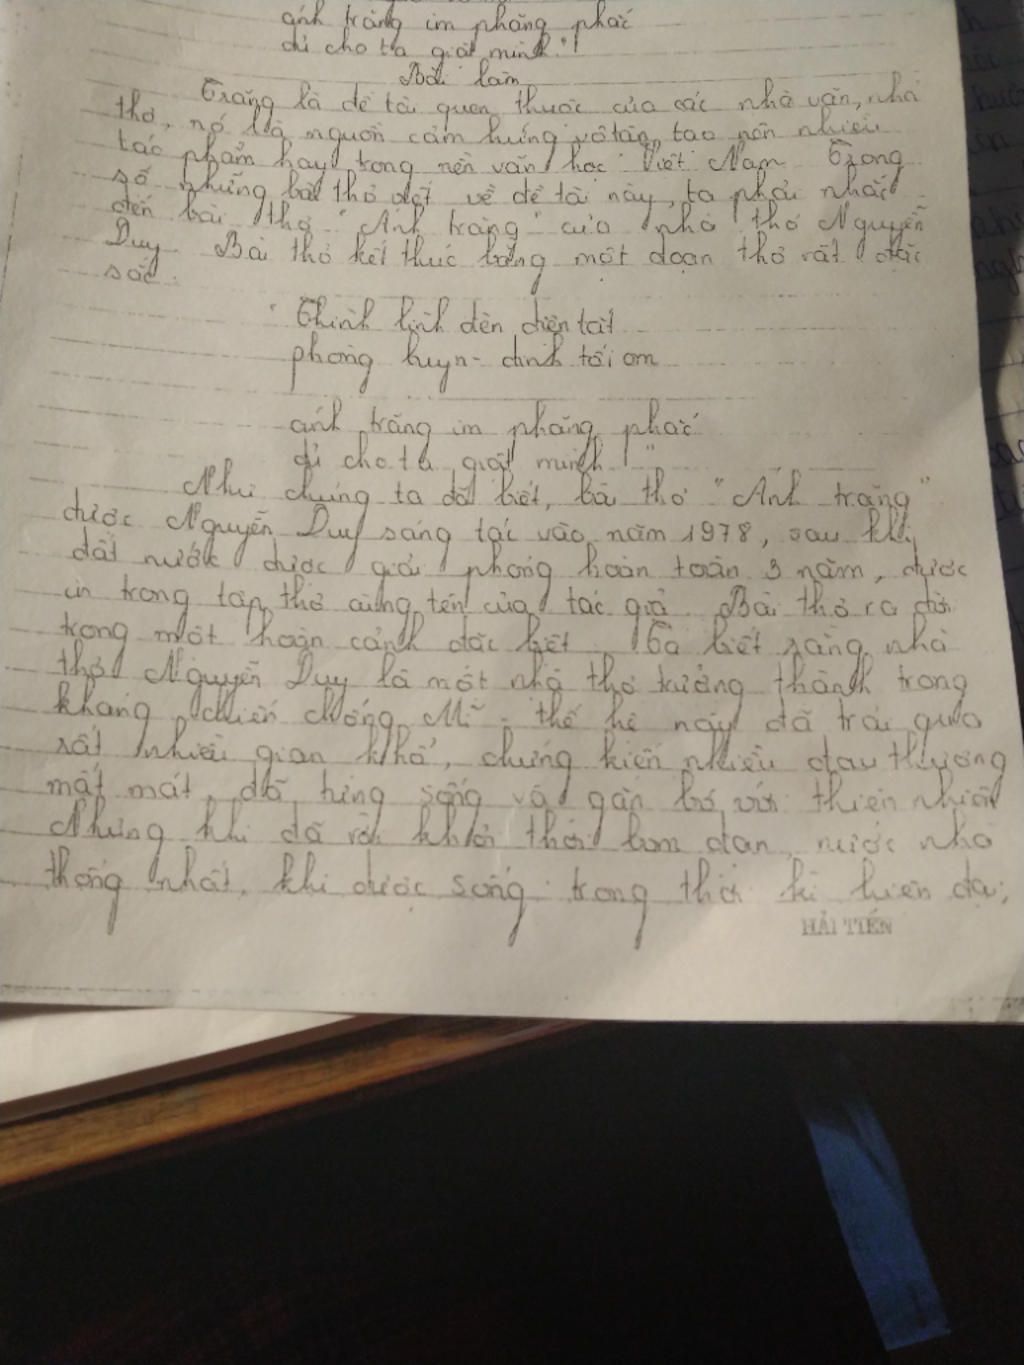 ánh trăng im phăng phắc
đủ cho ta giật mình"!
Bài làm
Trăng là đề tài quen thuộc của các nhà văn, nhà
thơ, nó là nguồn cảm hứng vô tận, tạo nên nhiều
tác phẩm hay trong nền văn học Việt Nam. Trong
số những bài thơ viết về đề tài này, ta phải nhắc
đến bài thơ "Ánh trăng" của nhà thơ Nguyễn
Duy. Bài thơ kết thúc bằng một đoạn thơ rất đặc
sắc:
"Thình lình đèn điện tắt
phòng huyn-đinh tối om
ánh trăng im phăng phắc
đủ cho ta giật mình"
Như chúng ta đã biết, bài thơ "Ánh trăng"
được Nguyễn Duy sáng tác vào năm 1978, sau khi
đất nước được giải phóng hoàn toàn 3 năm, được
in trong tập thơ cùng tên của tác giả. Bài thơ ra đời
trong một hoàn cảnh đặc biệt. Ta biết rằng, nhà
thơ Nguyễn Duy là một nhà thơ trưởng thành trong
kháng chiến chống Mĩ - thế hệ này đã trải qua
rất nhiều gian khổ, chứng kiến nhiều đau thương
mất mát, đã từng sống và gắn bó với thiên nhiên
Nhưng khi đã rời khỏi thời bom đạn, nước nhà
thống nhất, khi được sống trong thời kì hiện đại,
HẢI TIẾN